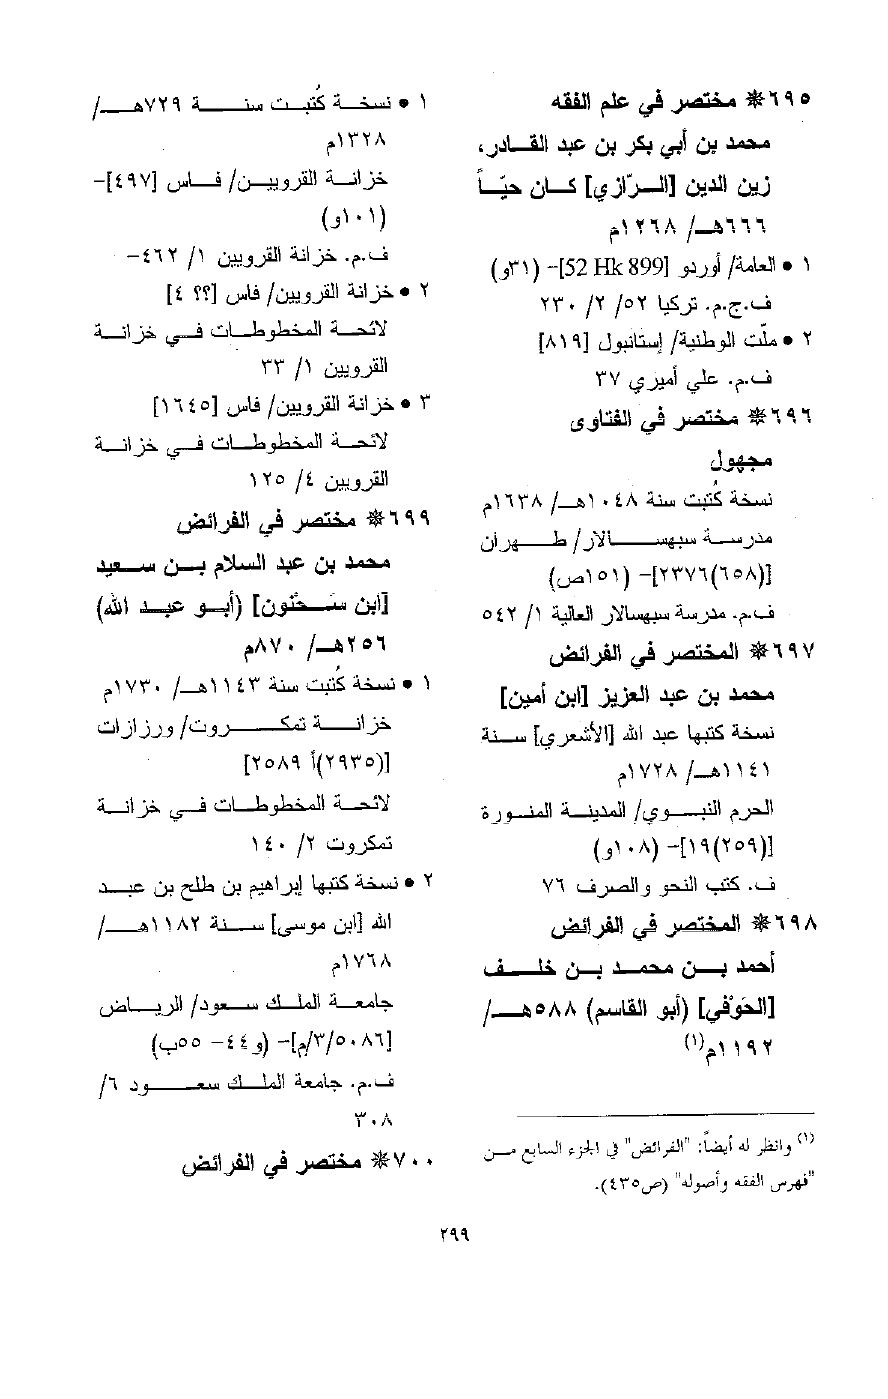 ٦٩٥❋ مختصر في علم الفقه
محمد بن أبي بكر بن عبد القادر،
زين الدين [الرّازي] كان حيّاً
٦٦٦هـ/ ١٢٦٨م
١ • العامة/ أوردو [52 Hk 899]- (٣١و)
ف.ج.م. تركيا ٥٢/ ٢/ ٢٣٠
٢ • ملّت الوطنية/ إستانبول [٨١٩]
ف.م. علي أميري ٣٧
٦٩٦❋ مختصر في الفتاوى
مجهول
نسخة كُتبت سنة ١٠٤٨هـ/ ١٦٣٨م
مدرسة سبهسالار/ طهران
[(٦٥٨)٢٣٧٦]- (١٥١ص)
ف.م. مدرسة سبهسالار العالية ١/ ٥٤٢
٦٩٧❋ المختصر في الفرائض
محمد بن عبد العزيز [ابن أمين]
نسخة كتبها عبد الله [الأشعري] سنة
١١٤١هـ/ ١٧٢٨م
الحرم النبوي/ المدينة المنورة
[(٢٥٩)١٩]- (١٠٨و)
ف. كتب النحو والصرف ٧٦
٦٩٨❋ المختصر في الفرائض
أحمد بن محمد بن خلف
[الحَوْفي] (أبو القاسم) ٥٨٨هـ/
١١٩٢م(١)
(١) وانظر له أيضاً: "الفرائض" في الجزء السابع من
"فهرس الفقه وأصوله" (ص٤٣٥).
١ • نسخة كُتبت سنة ٧٢٩هـ/
١٣٢٨م
خزانة القرويين/ فاس [٤٩٧]-
(١٠١و)
ف.م. خزانة القرويين ١/ ٤٦٢-
٢ • خزانة القرويين/ فاس [؟؟ ٤]
لائحة المخطوطات في خزانة
القرويين ١/ ٣٣
٣ • خزانة القرويين/ فاس [١٦٤٥]
لائحة المخطوطات في خزانة
القرويين ٤/ ١٢٥
٦٩٩❋ مختصر في الفرائض
محمد بن عبد السلام بن سعيد
[ابن سَحْنون] (أبو عبد الله)
٢٥٦هـ/ ٨٧٠م
١ • نسخة كُتبت سنة ١١٤٣هـ/ ١٧٣٠م
خزانة تمكروت/ ورزازات
[(٢٩٣٥)أ ٢٥٨٩]
لائحة المخطوطات في خزانة
تمكروت ٢/ ١٤٠
٢ • نسخة كتبها إبراهيم بن طلح بن عبد
الله [ابن موسى] سنة ١١٨٢هـ/
١٧٦٨م
جامعة الملك سعود/ الرياض
[٥٠٨٦/٣/م]- (و٤٤- ٥٥ب)
ف.م. جامعة الملك سعود ٦/
٣٠٨
٧٠٠❋ مختصر في الفرائض
٢٩٩